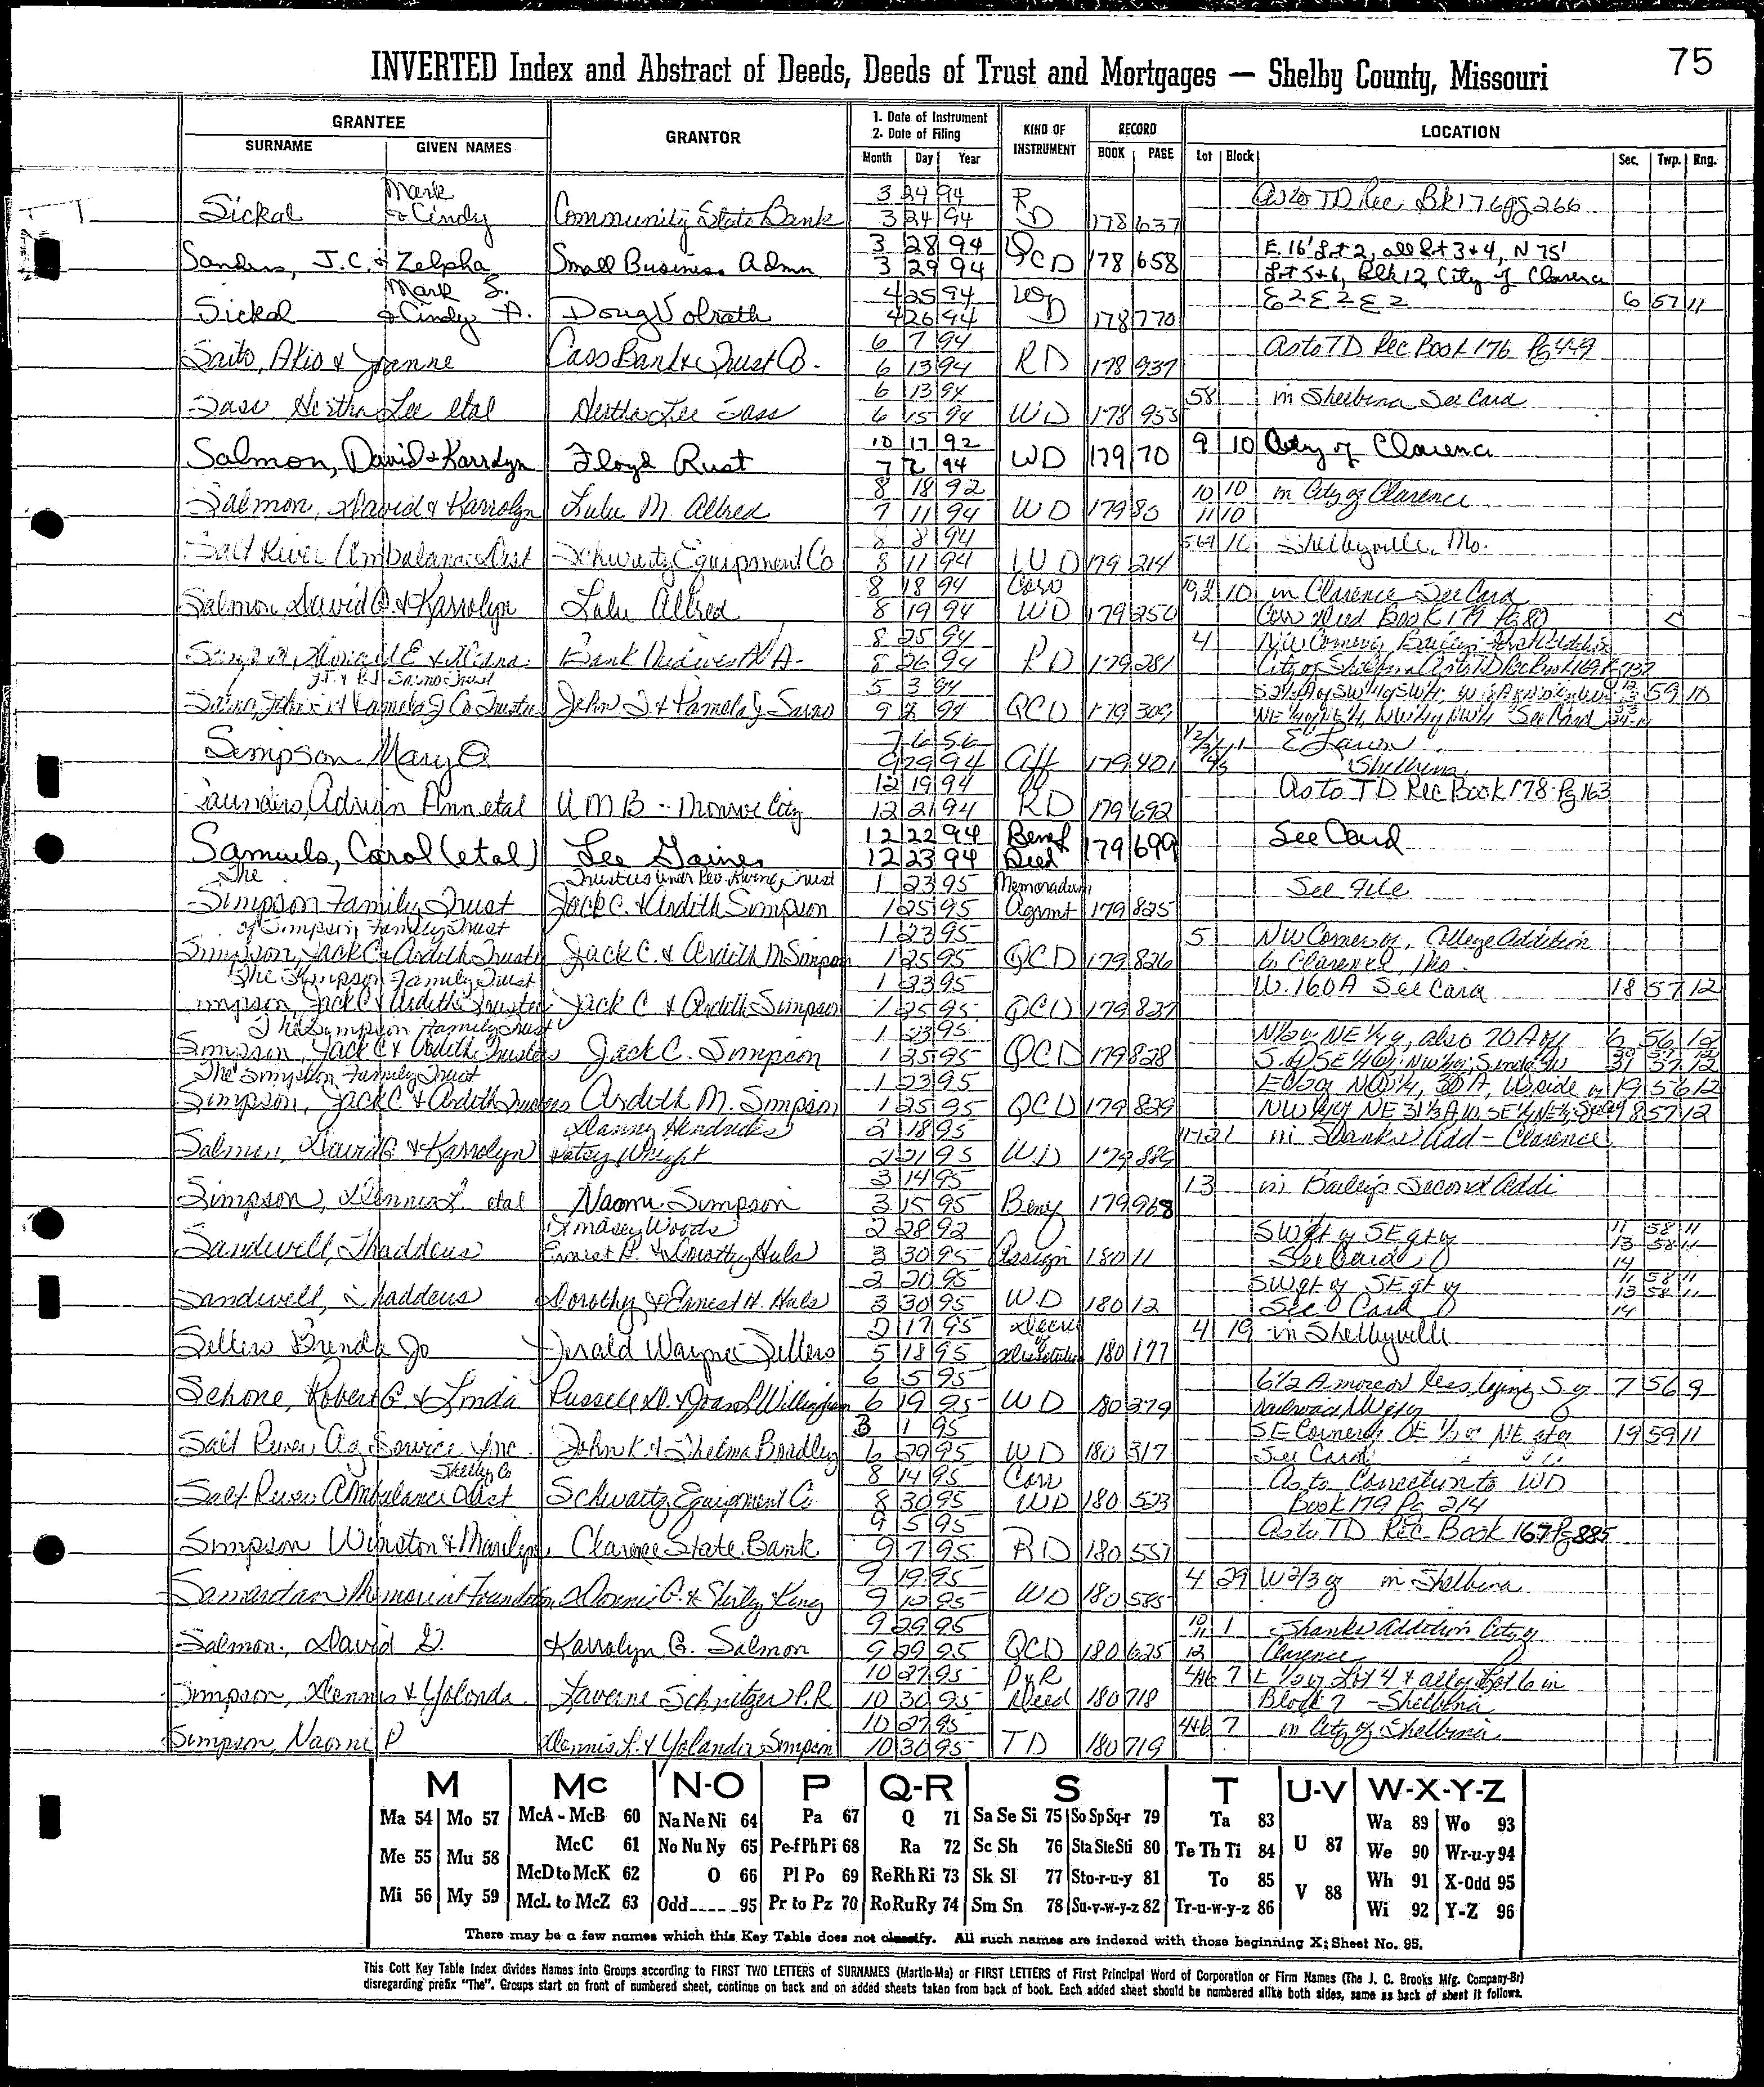 75
INVERTED Index and Abstract of Deeds, Deeds of Trust and Mortgages — Shelby County, Missouri
GRANTEE GRANTOR 1. Date of Instrument 2. Date of Filing KIND OF INSTRUMENT RECORD LOCATION
SURNAME GIVEN NAMES Month Day Year BOOK PAGE Lot Block Sec. Twp. Rng.
Mark 3 24 94 R As to TD Rec Bk 176 pg 266
Sickal & Cindy Community State Bank 3 24 94 D 178 637
3 28 94 E 16' Lt 2, all Lt 3+4, N 75'
Sanders, J.C. & Zelpha Small Business Admn 3 29 94 QCD 178 658 Lt 5+6, Blk 12, City of Clarence
Mark S. 4 25 94 W E 2 E 2 E 2 6 57 11
Sickal & Cindy A. Doug Volrath 4 26 94 D 178 770
6 7 94 As to TD Rec Book 176 Pg 449
Saito, Akio & Cass Bank & Trust Co. 6 13 94 RD 178 937
6 13 94 58 in Shelbina See Card
Hertha Lee etal Hertha Lee Sass 6 15 94 WD 178 953
10 17 92 9 10 City of Clarence
Salmon, David & Karrolyn Floyd Rust 7 7 94 WD 179 70
8 18 92 10 10 in City of Clarence
Salmon, David & Karrolyn Lulu M. Allred 7 11 94 WD 179 80 11 10
8 8 94 Shelbyville, Mo.
Salt River Ambulance Dist Schwartz Equipment Co 8 11 94 WD 179 214
8 18 94 Corr 10 in Clarence See Card
Salmon David G. & Karrolyn Lulu Allred 8 19 94 WD 179 250 Corr Deed Book 179 Pg 80
8 25 94 4 NW Corner
& Donna Bank Midwest N.A. 8 26 94 RD 179 281 City of Shelbina As to TD Rec Book 169
5 3 94 59 10
John J & Pamela J Co Trustee John J & Pamela J. 9 2 94 QCD 179 309 NW 1/4 See Card
7 6 56 E Lawn
Simpson Mary O 9 29 94 Aff 179 401 Shelbina
12 19 94 As to TD Rec Book 178 Pg 163
Adrian Ann etal UMB - Monroe City 12 21 94 RD 179 692
12 22 94 Benef See Card
Samuels, Carol (etal) Lee Gaines 12 23 94 Deed 179 699
The Trustees under Rev. Living Trust 1 23 95 Memorandum See File
Simpson Family Trust Jack C. & Ardith Simpson 1 25 95 Agrmt 179 825
of Simpson Family Trust 1 23 95 5 NW Corner of, College Addition
Simpson, Jack C & Ardith Trustee Jack C. & Ardith M Simpson 1 25 95 QCD 179 826 to Clarence, Mo.
The Simpson Family Trust 1 23 95 W. 160A See Card 18 57 12
Simpson, Jack C & Ardith Trustee Jack C & Ardith Simpson 1 25 95 QCD 179 827
The Simpson Family Trust 1 23 95 N 1/2 of NE 1/4, also 70 A of 6 56 12
Simpson, Jack C & Ardith Trustees Jack C. Simpson 1 25 95 QCD 179 828 31 57 12
The Simpson Family Trust 1 23 95 30 A, W side of 19 56 12
Simpson, Jack C & Ardith Trustees Ardith M. Simpson 1 25 95 QCD 179 829 NW 1/4 of NE 31 1/3 A 57 12
Danny Hendricks 2 18 95 in Shanks Add - Clarence
Salmon, David G & Karrolyn Patsy Wright 2 21 95 WD 179 889
3 14 95 13 in Baileys Second Addi
Simpson, Dennis L. etal Naomi Simpson 3 15 95 Beny 179 968
Lindsey Woods 2 28 92 SW qt of SE qt of 11 58 11
Sandwell, Thaddeus Ernest H. & Dorothy Hals 3 30 95 Assign 180 11 See Card 13 58 11
14
2 20 95 SW qt of SE qt of 11 58 11
Sandwell, Thaddeus Dorothy & Ernest H. Hals 3 30 95 WD 180 12 See Card 13 58 11
14
2 17 95 Decree of 4 19 in Shelbyville
Sellers Brenda Jo Jerald Wayne Sellers 5 18 95 Dissolution 180 177
6 5 95 6 1/2 A more or less lying S of 7 56 9
Schone, Robert G & Linda Russell D. & Joan 6 19 95 WD 180 279 Railroad
3 1 95 SE Corner of 19 59 11
Salt River Ag Service Inc. John K. & Thelma Bradley 6 29 95 WD 180 317 See Card
Shelby Co 8 14 95 Corr As to Correction to WD
Salt River Ambulance Dist Schwartz Equipment Co 8 30 95 WD 180 523 Book 179 Pg 214
9 5 95 As to TD Rec. Book 167 Pg 885
Simpson Winston & Marilyn Clarence State Bank 9 7 95 RD 180 557
9 19 95 4 29 W 2/3 of in Shelbina
Samaritan Memorial Foundation Donnie G. & Shirley King 9 95 WD 180 585
9 29 95 10 11 1 Shanks Addition City of
Salmon, David G. Karrolyn G. Salmon 9 29 95 QCD 180 625 12 Clarence
10 27 95 P of R 4+6 7 E 1/2 of Lot 4 & all of Lot 6 in
Simpson, Dennis & Yolonda Laverne Schnitzer P.R 10 30 95 Deed 180 718 Block 7 - Shelbina
10 27 95 4+6 7 in City of Shelbina
Simpson, Naomi P Dennis L. & Yolanda Simpson 10 30 95 TD 180 719
M Mc N-O P Q-R S T U-V W-X-Y-Z
Ma 54 Mo 57 McA - McB 60 Na Ne Ni 64 Pa 67 Q 71 Sa Se Si 75 So Sp Sq-r 79 Ta 83 Wa 89 Wo 93
Me 55 Mu 58 McC 61 No Nu Ny 65 Pe-f Ph Pi 68 Ra 72 Sc Sh 76 Sta Ste Sti 80 Te Th Ti 84 U 87 We 90 Wr-u-y 94
McD to McK 62 O 66 Pl Po 69 Re Rh Ri 73 Sk Sl 77 Sto-r-u-y 81 To 85 V 88 Wh 91 X-Odd 95
Mi 56 My 59 McL to McZ 63 Odd-----95 Pr to Pz 70 Ro Ru Ry 74 Sm Sn 78 Su-v-w-y-z 82 Tr-u-w-y-z 86 Wi 92 Y-Z 96
There may be a few names which this Key Table does not classify. All such names are indexed with those beginning X; Sheet No. 95.
This Cott Key Table Index divides Names into Groups according to FIRST TWO LETTERS of SURNAMES (Martin-Ma) or FIRST LETTERS of First Principal Word of Corporation or Firm Names (The J. C. Brooks Mfg. Company-Br)
disregarding prefix "The". Groups start on front of numbered sheet, continue on back and on added sheets taken from back of book. Each added sheet should be numbered alike both sides, same as back of sheet it follows.